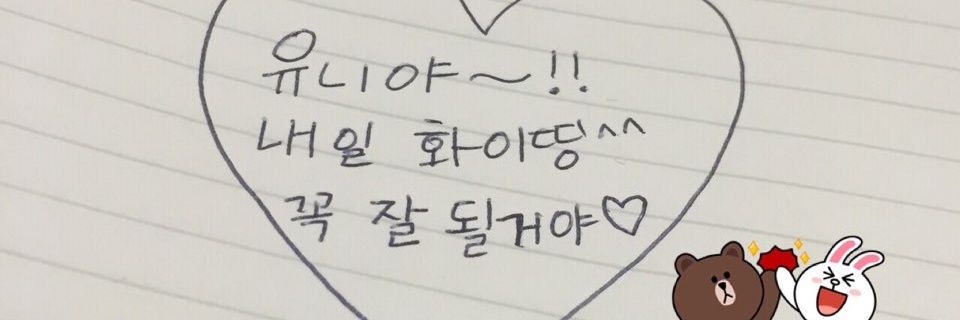 유니야~!!
내일 화이띵^^
꼭 잘 될거야♡